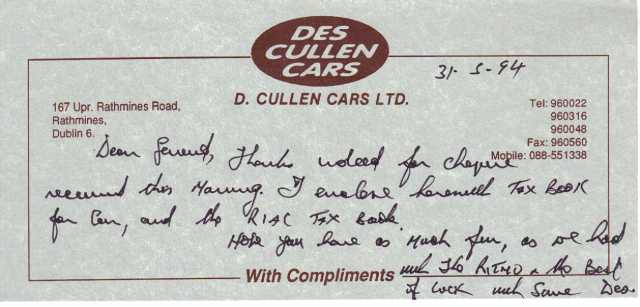 DES
CULLEN
CARS
31-5-94
D. CULLEN CARS LTD.
167 Upr. Rathmines Road,
Rathmines,
Dublin 6.
Tel: 960022
960316
960048
Fax: 960560
Mobile: 088-551338
Dear Gerard, Thanks indeed for cheque
received this Morning. I enclose herewith Tax Book
for Car, and the RIAC Tax Book.
Hope you have as much fun, as we had
With Compliments
with the RITMO & the Best
of luck with Same Des